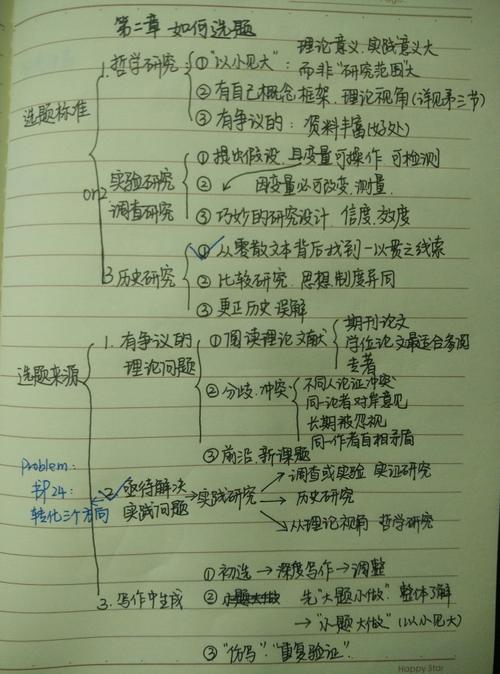 第二章 如何选题
选题标准
1. 哲学研究
①“以小见大”: 理论意义.实践意义大
而非“研究范围”大
② 有自己概念框架.理论视角(详见第三节)
③ 有争议的: 资料丰富(好处)
or2.
实验研究
调查研究
① 提出假设. 且变量可操作 可检测
② 因变量必可改变.测量.
③ 巧妙的研究设计 信度.效度
3 历史研究
① 从零散文本背后找到一以贯之线索
② 比较研究. 思想.制度异同
③ 更正历史误解
选题来源
1. 有争议的
理论问题
① 阅读理论文献
期刊论文
学位论文最适合参阅
专著
② 分歧.冲突
不同人论证冲突
同一论者对岸意见
长期被忽视
同一作者自相矛盾
③ 前沿.新课题
Problem:
书P24:
转化三个方向
2. 亟待解决
实践问题
→实践研究
→调查或实验 实证研究
→ 历史研究
→ 从理论视角 哲学研究
3. 写作中生成
① 初选 → 深度写作 → 调整
② 小题大做 先“大题小做”. 整体了解
→ “小题大做”(以小见大)
③ “仿写”.“重复验证”.
Happy Star